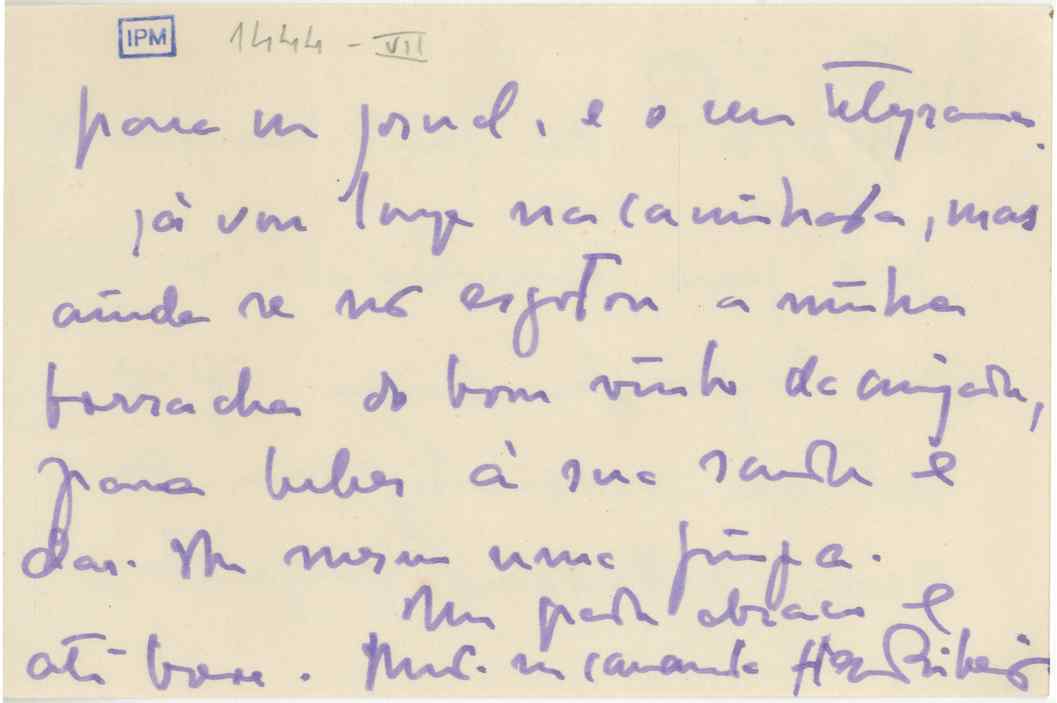 IPM 1444 - VII
para um jornal, e o seu telegrama.
já vou longe na caminhada, mas
ainda se não esgotou a minha
borracha do bom vinho da amizade,
para beber à sua saúde e
dar-lhe mesmo uma pinga.
Um grande abraço e
até breve. camarada Ribeiro